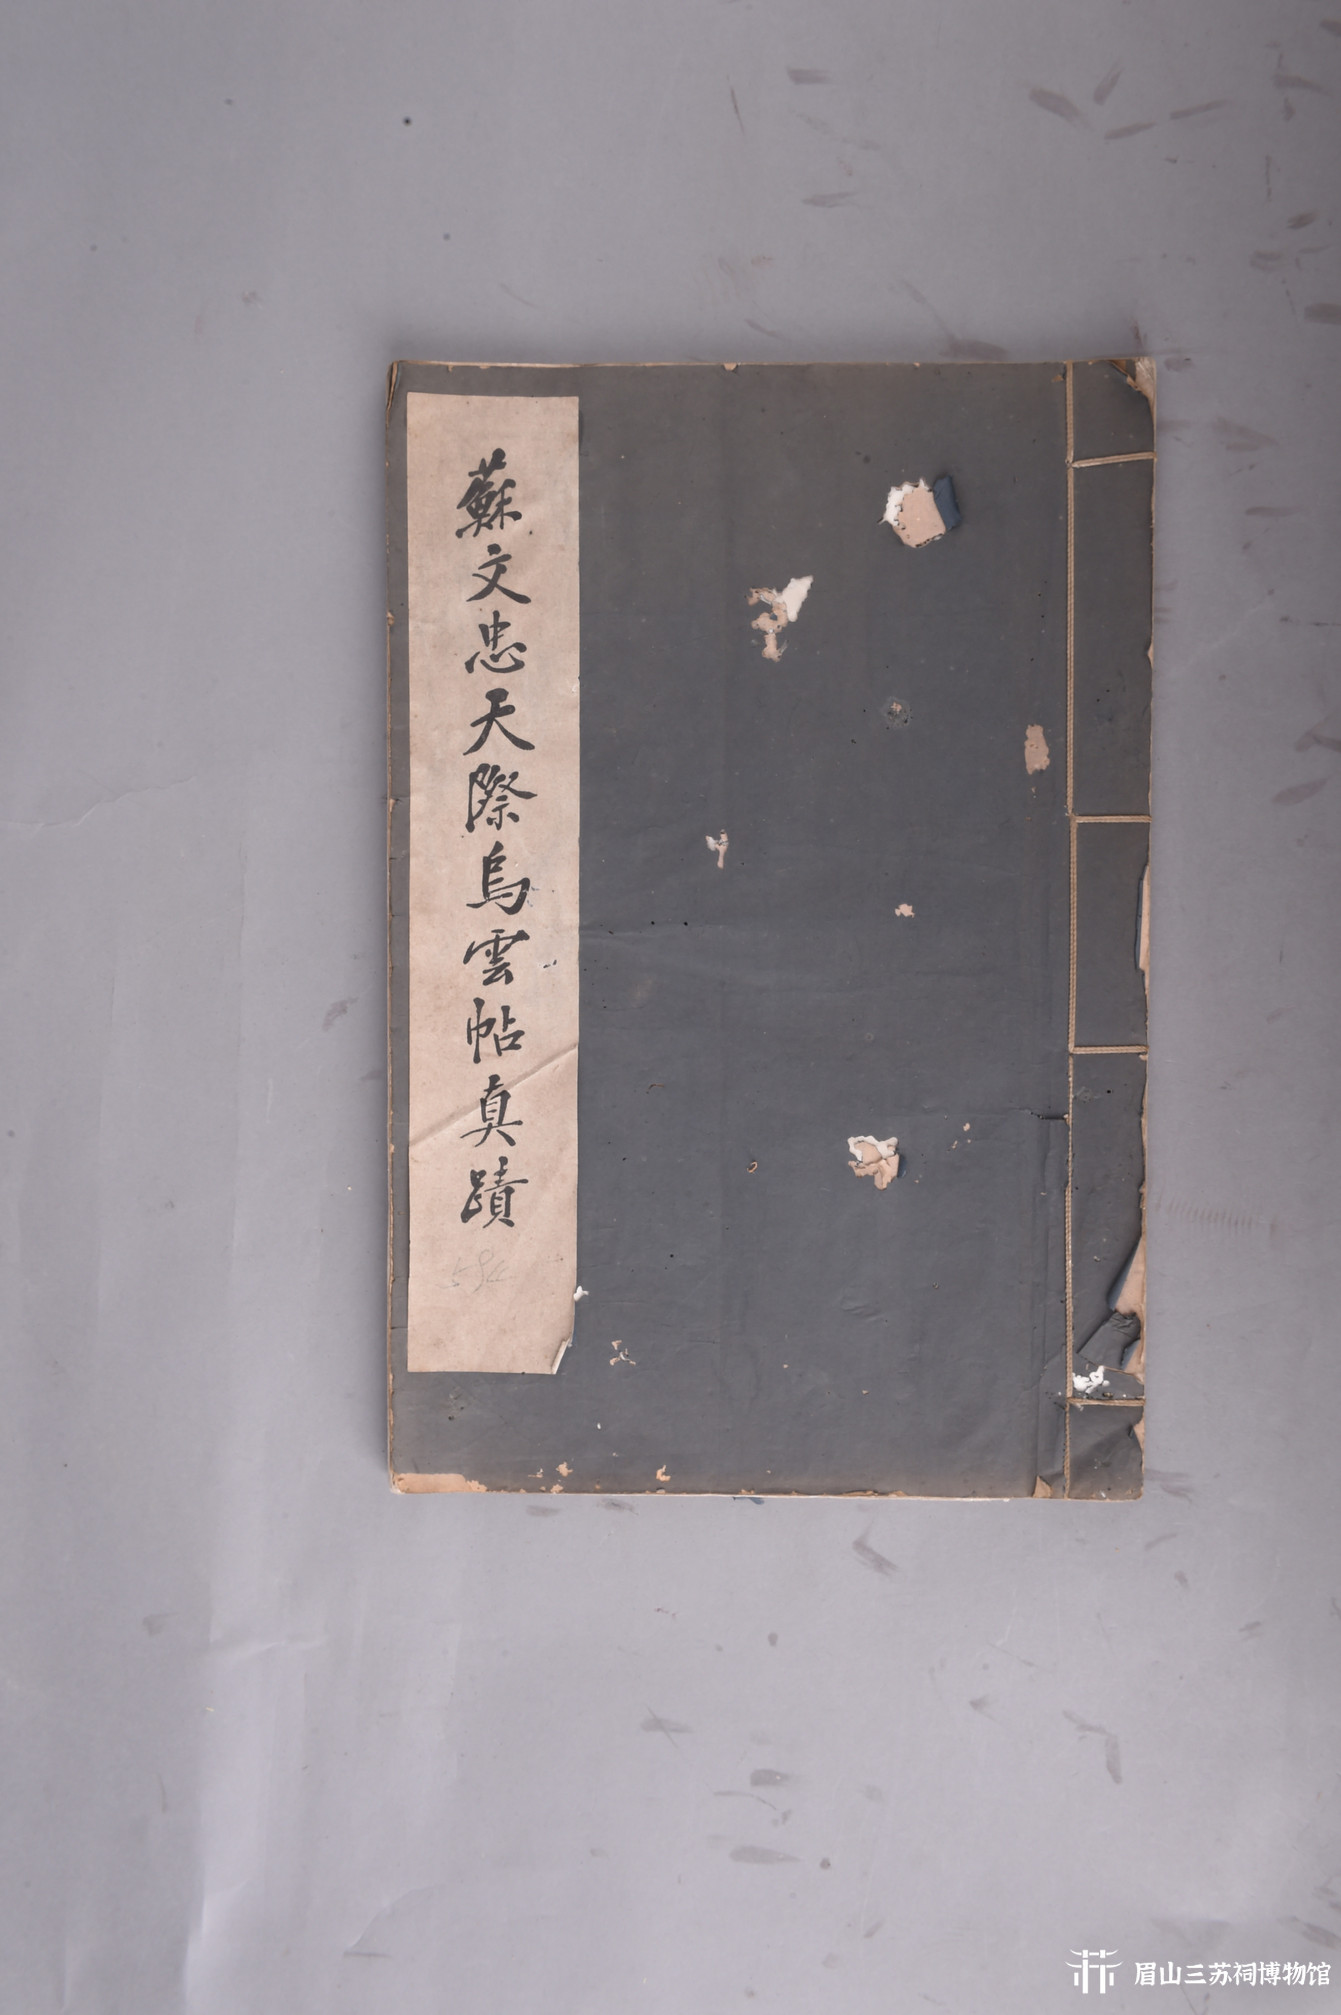 蘇文忠天際烏雲帖真蹟
594
眉山三苏祠博物馆